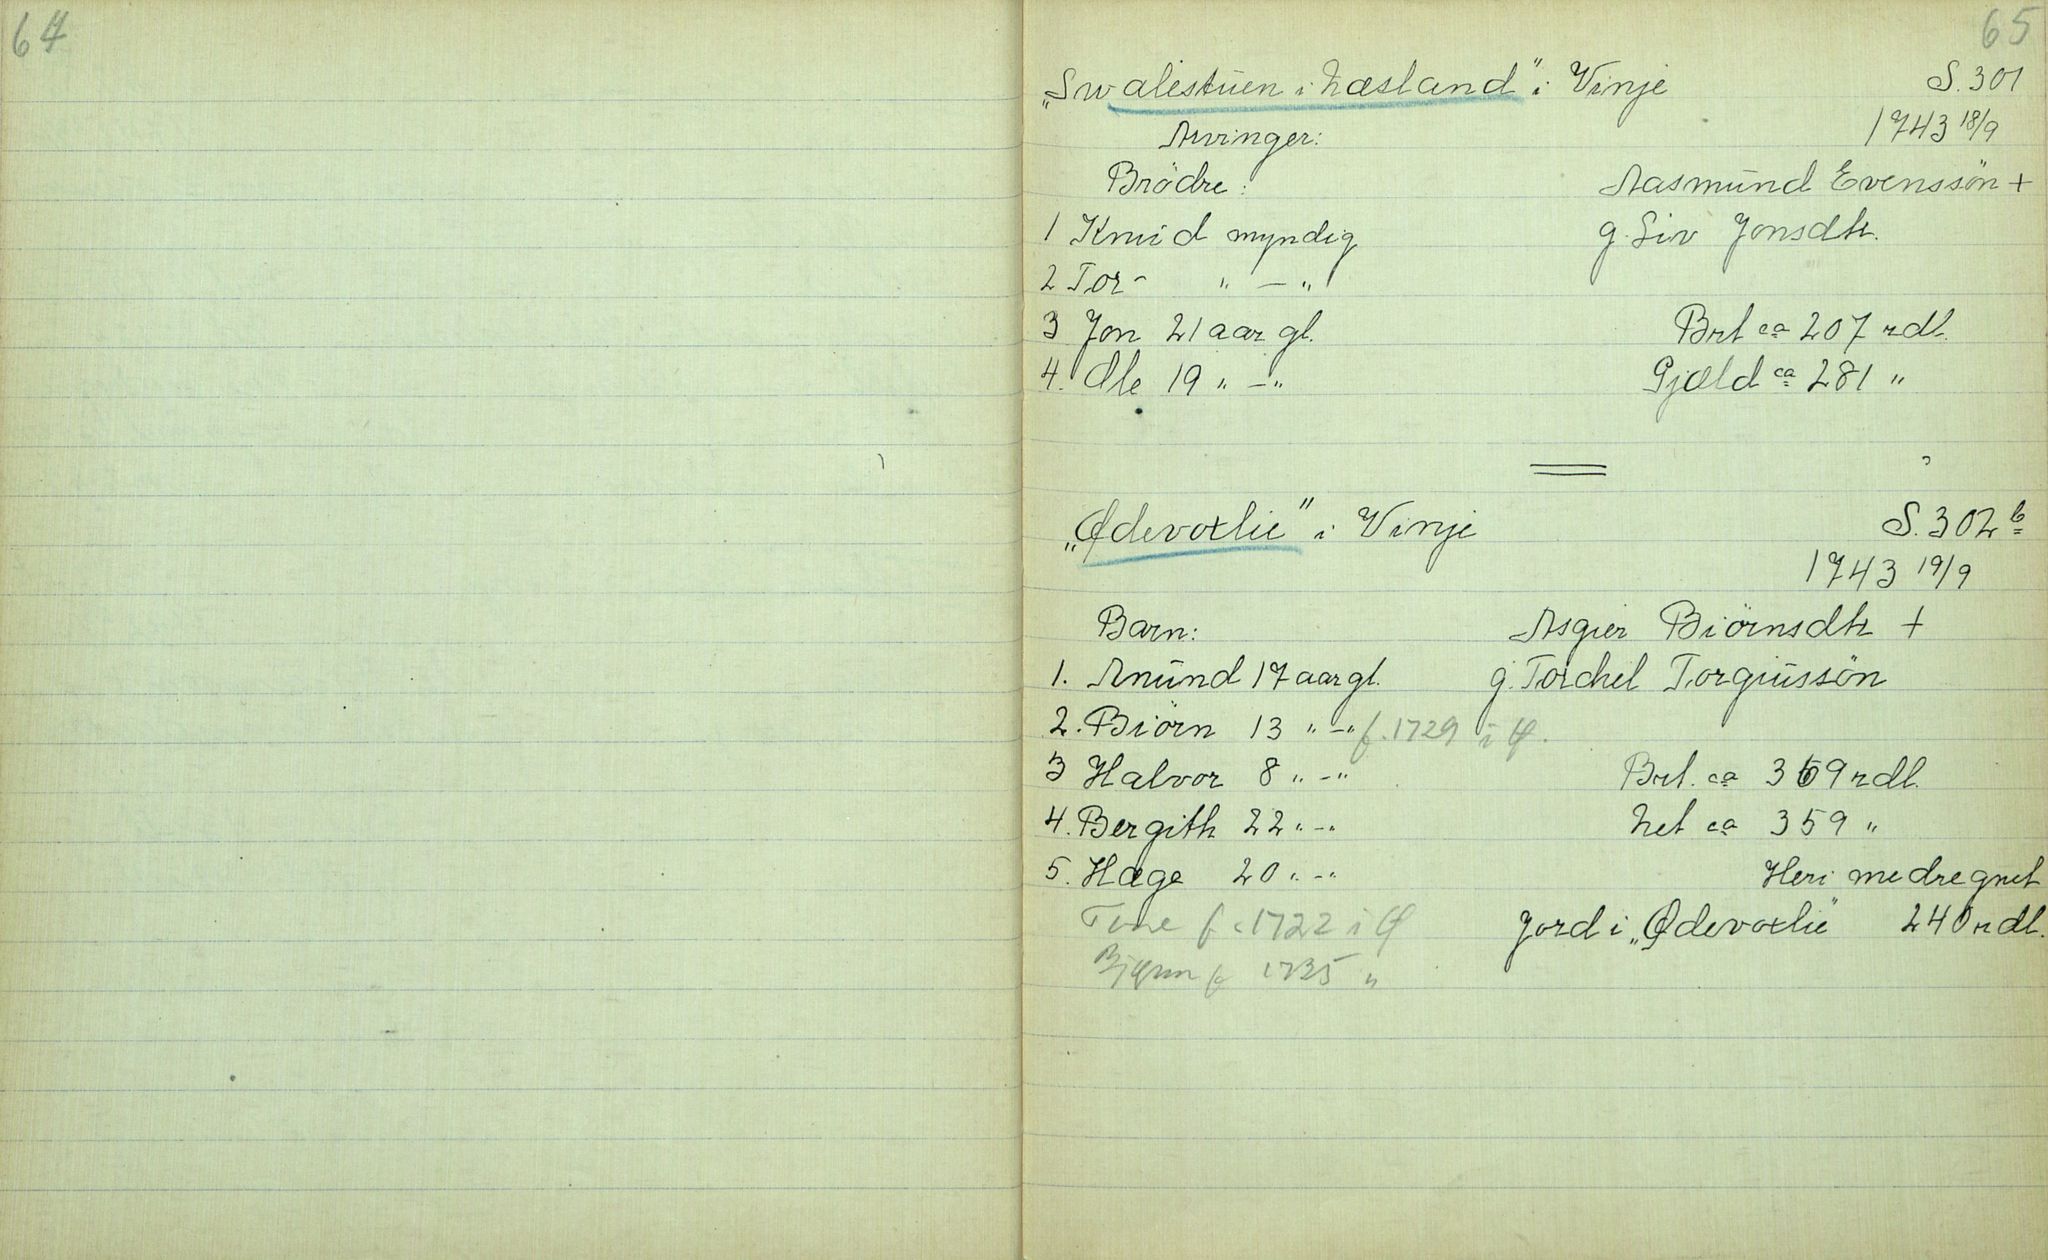 64
65
„Swalestuen i Næsland" i Vinje S. 301
1743 18/9
Arvinger:
Brödre: Aasmund Evenssön +
1 Knud myndig g. Siv Jonsdtr.
2 Tor - " — "
3 Jon 21 aar gl. Brt ca 207 rdl.
4. Ole 19 " — " Gjæld ca 281 "
„Ødevoxlie" i Vinje S. 302 b
1743 19/9
Barn: Asgier Biörnsdtr +
1. Anund 17 aar gl. g. Torchel Torgiussön
2. Biörn 13 " — " f. 1729 i Ø.
3 Halvor 8 " — " Brt. ca 369 rdl.
4. Bergith 22 " — " Net ca 359 "
5. Hæge 20 " — " Heri medregnet
Tone f. 1722 i Ø Jord i „Ødevoxlie" 240 rdl.
Bjørn f 1735 "